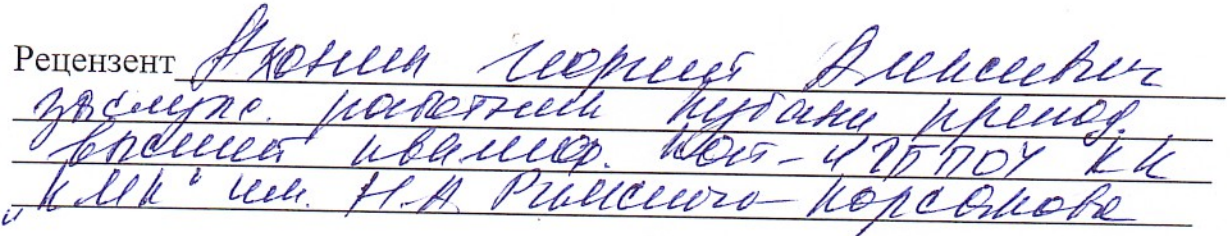 Рецензент Яконин Георгий Алексеевич
заслуж. работник Кубани препод.
высшей квалиф. кат-и ГБПОУ КК
"КМК" им. Н.А. Римского-Корсакова